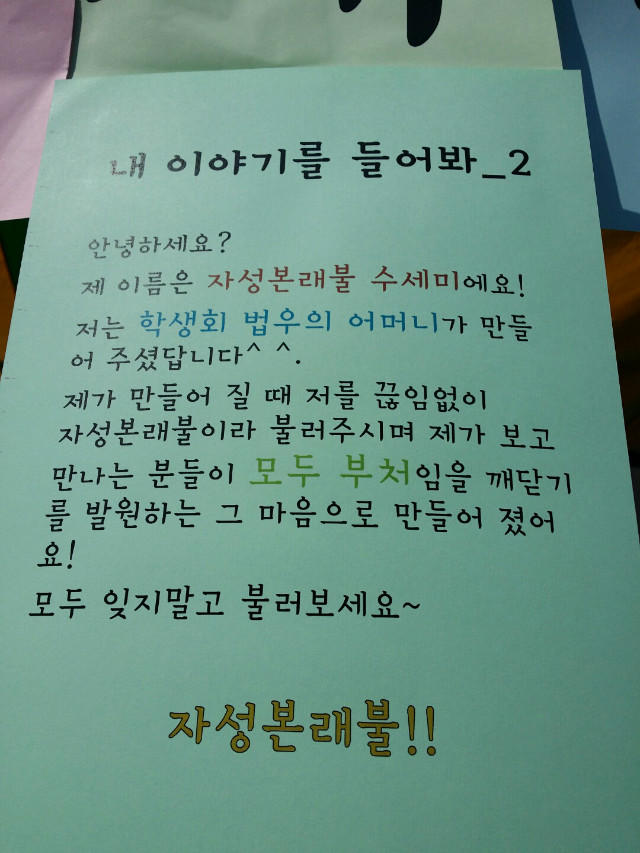 내 이야기를 들어봐_2
안녕하세요?
제 이름은 자성본래불 수세미에요!
저는 학생회 법우의 어머니가 만들
어 주셨답니다^ ^.
제가 만들어 질 때 저를 끊임없이
자성본래불이라 불러주시며 제가 보고
만나는 분들이 모두 부처임을 깨닫기
를 발원하는 그 마음으로 만들어 졌어
요!
모두 잊지말고 불러보세요~
자성본래불!!